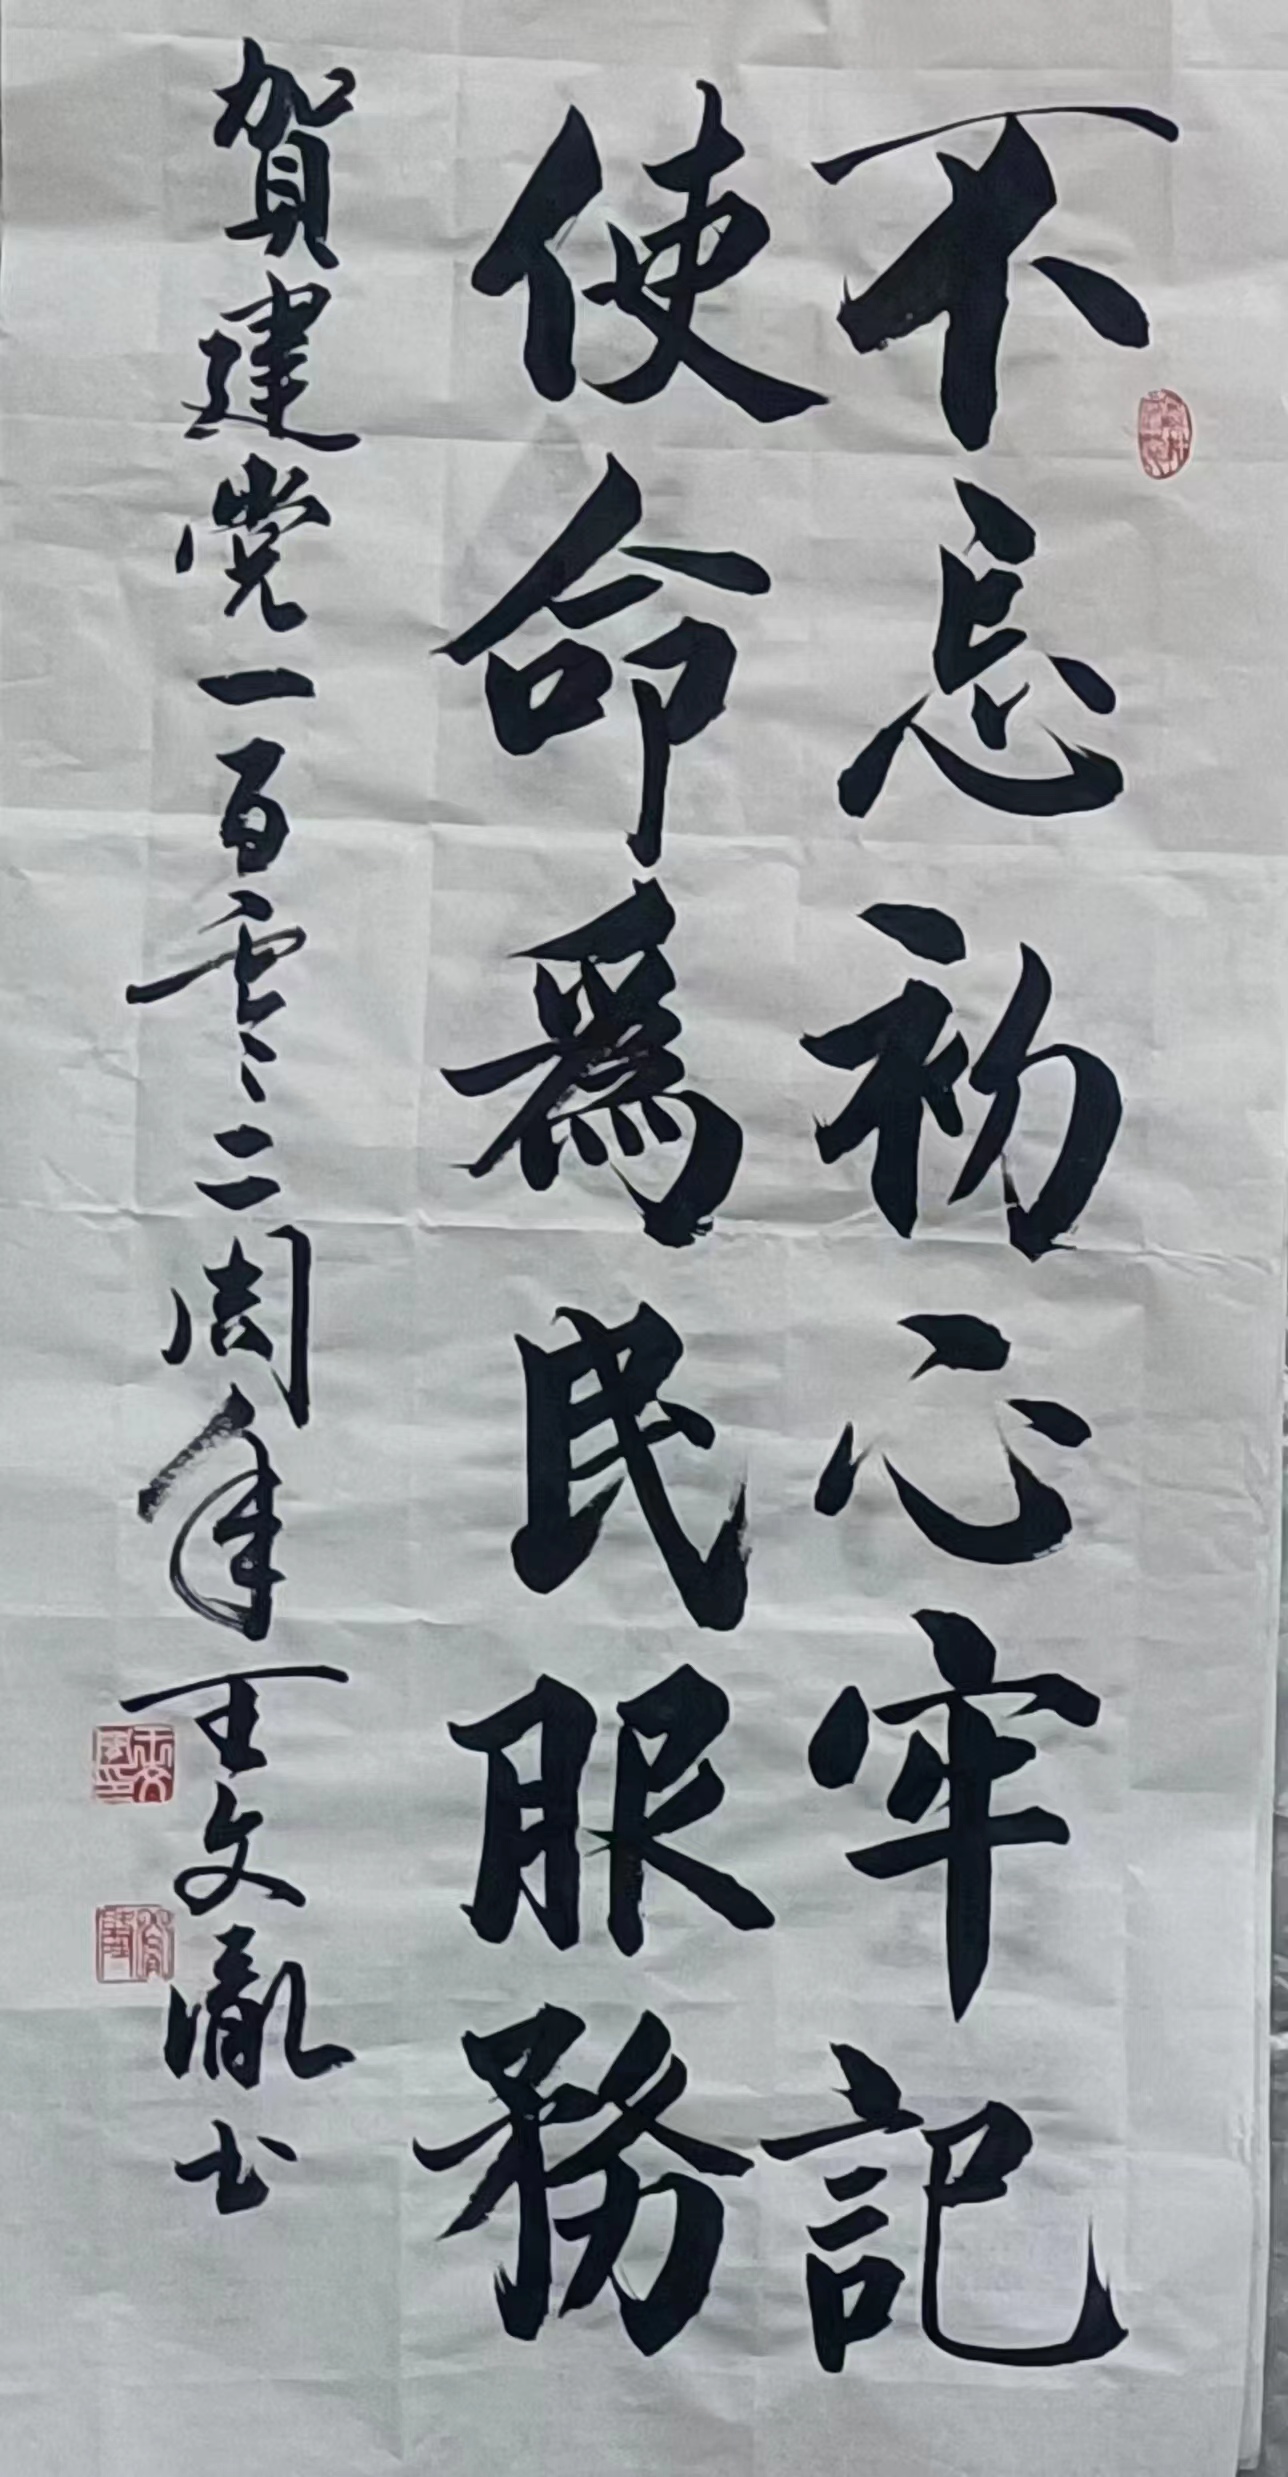 不忘初心牢記
使命爲民服務
賀建党一百零二周年 王文胤书